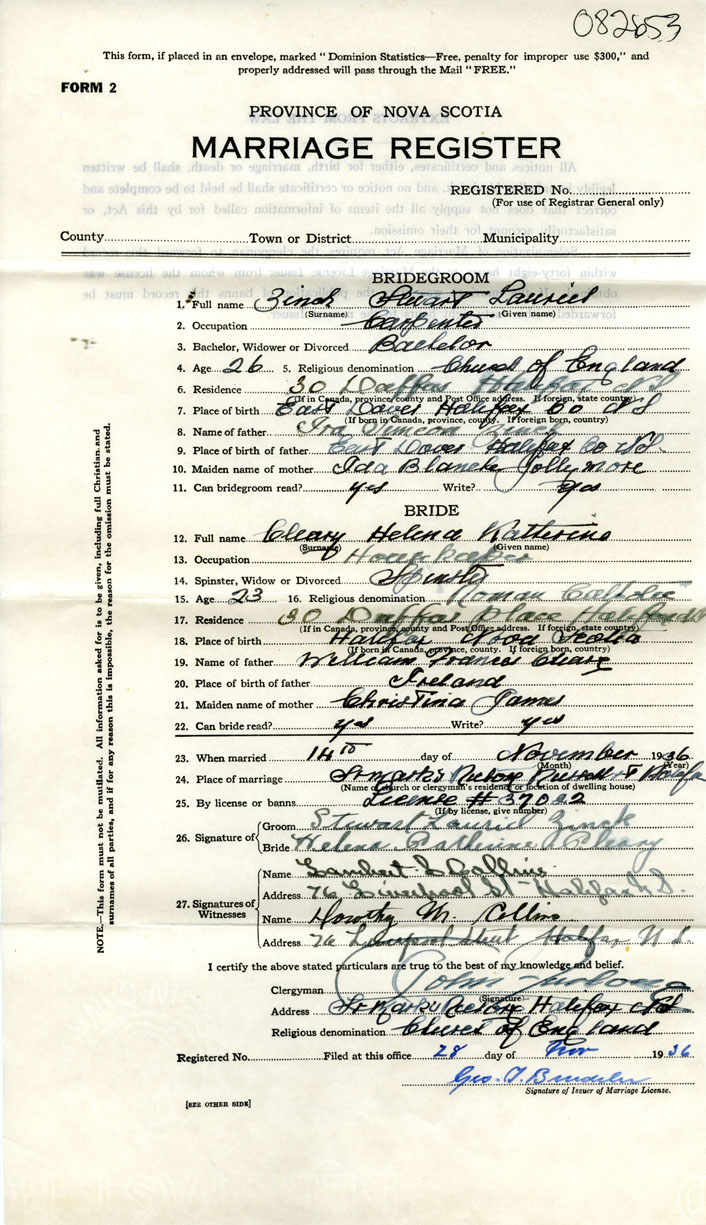 082653
This form, if placed in an envelope, marked "Dominion Statistics—Free, penalty for improper use $300," and
properly addressed will pass through the Mail "FREE."
FORM 2
PROVINCE OF NOVA SCOTIA
MARRIAGE REGISTER
REGISTERED No.
(For use of Registrar General only)
County Town or District Municipality
BRIDEGROOM
1. Full name Zinck Stewart Lauriel
(Surname) (Given name)
2. Occupation Carpenter
3. Bachelor, Widower or Divorced Bachelor
4. Age 26 5. Religious denomination Church of England
6. Residence 30 Duffus Halifax N S
(If in Canada, province, county and Post Office address. If foreign, state country)
7. Place of birth East Dover Halifax Co N S
(If born in Canada, province, county. If foreign born, country)
8. Name of father Ira Simeon Zinck
9. Place of birth of father East Dover Halifax Co N S.
10. Maiden name of mother Ida Blanche Jollymore
11. Can bridegroom read? yes Write? yes
BRIDE
12. Full name Cleary Helena Katherine
(Surname) (Given name)
13. Occupation
14. Spinster, Widow or Divorced Spinster
15. Age 23 16. Religious denomination Roman Catholic
17. Residence 30 Duffus Place Halifax NS
(If in Canada, province, county and Post Office address. If foreign, state country)
18. Place of birth Halifax Nova Scotia
(If born in Canada, province, county. If foreign born, country)
19. Name of father William Francis Cleary
20. Place of birth of father Ireland
21. Maiden name of mother Christina James
22. Can bride read? yes Write? yes
23. When married 14th day of November 1936
(Month) (Year)
24. Place of marriage St Marks Rectory Russell St Halifax
(Name of church or clergyman's residence or location of dwelling house)
25. By license or banns License # 37022
(If by license, give number)
26. Signature of Groom Stewart Lauriel Zinck
Bride Helena Catherine Cleary
27. Signatures of Witnesses
Name Lambert Collins
Address 76 Liverpool St Halifax N.S.
Name Dorothy M. Collins
Address 76 Liverpool Street Halifax N S.
I certify the above stated particulars are true to the best of my knowledge and belief.
Clergyman John
(Signature)
Address St Marks Rectory Halifax NS
Religious denomination Church of England
Registered No. Filed at this office 28 day of Nov 1936
Geo. T.
Signature of Issuer of Marriage License.
[SEE OTHER SIDE]
NOTE.—This form must not be mutilated. All information asked for is to be given, including full Christian and
surnames of all parties, and if for any reason this is impossible, the reason for the omission must be stated.